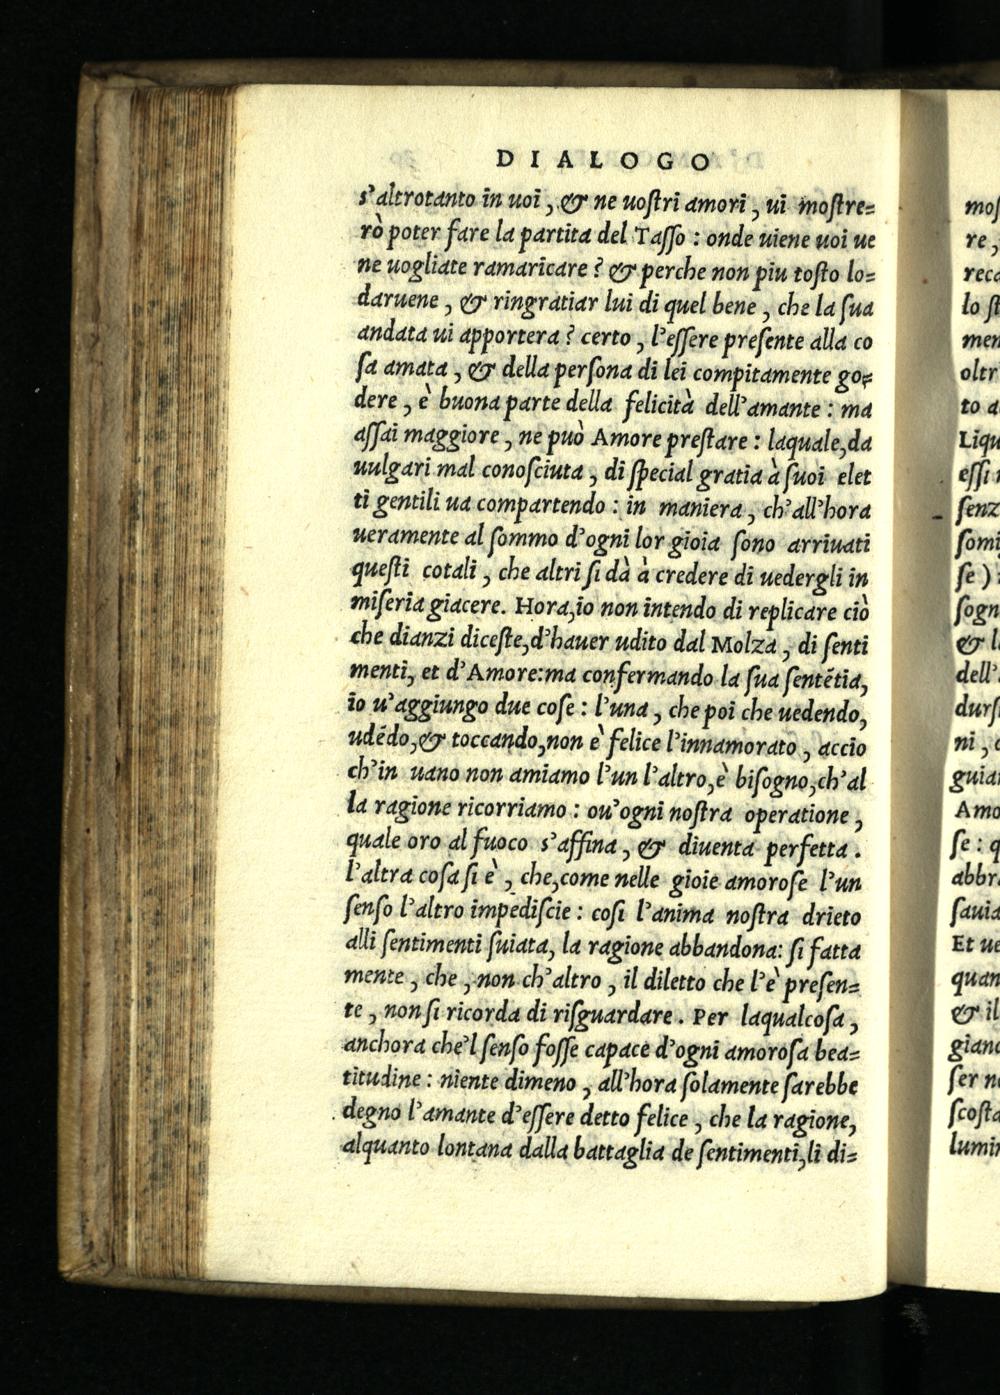 DIALOGO
s'altrotanto in uoi, & ne uoſtri amori, ui moſtre=
rò poter fare la partita del Taſſo : onde uiene uoi ue
ne uogliate ramaricare ? & perche non piu toſto lo=
daruene, & ringratiar lui di quel bene, che la ſua
andata ui apportera ? certo, l'eſſere preſente alla co
ſa amata, & della perſona di lei compitamente go=
dere, è buona parte della felicità dell'amante : ma
aſſai maggiore, ne può Amore preſtare : laquale,da
uulgari mal conoſciuta, di ſpecial gratia à ſuoi elet
ti gentili ua compartendo : in maniera, ch'all'hora
ueramente al ſommo d'ogni lor gioia ſono arriuati
queſti cotali, che altri ſi dà à credere di uedergli in
miſeria giacere. Hora,io non intendo di replicare ciò
che dianzi diceſte,d'hauer udito dal Molza, di ſenti
menti, et d'Amore:ma confermando la ſua ſentẽtia,
io u'aggiungo due coſe : l'una, che poi che uedendo,
udẽdo,& toccando,non è felice l'innamorato, accio
ch'in uano non amiamo l'un l'altro,è biſogno,ch'al
la ragione ricorriamo : ou'ogni noſtra operatione,
quale oro al fuoco s'affina, & diuenta perfetta.
l'altra coſa ſi è, che,come nelle gioie amoroſe l'un
ſenſo l'altro impediſcie : coſi l'anima noſtra drieto
alli ſentimenti ſuiata, la ragione abbandona: ſi fatta
mente, che, non ch'altro, il diletto che l'è preſen=
te, non ſi ricorda di riſguardare. Per laqualcoſa,
anchora che'l ſenſo foſſe capace d'ogni amoroſa bea=
titudine : niente dimeno, all'hora ſolamente ſarebbe
degno l'amante d'eſſere detto felice, che la ragione,
alquanto lontana dalla battaglia de ſentimenti,li di=
moſ
re,
reca
lo ſt
men
oltr
to a
Liqu
eſſi
ſenz
ſomi
ſe)
ſogn
& l
dell'
durſ
ni,
guia
Amo
ſe : q
abbr
ſauia
Et ue
quan
& il
gian
ſer n
ſcoſta
lumi